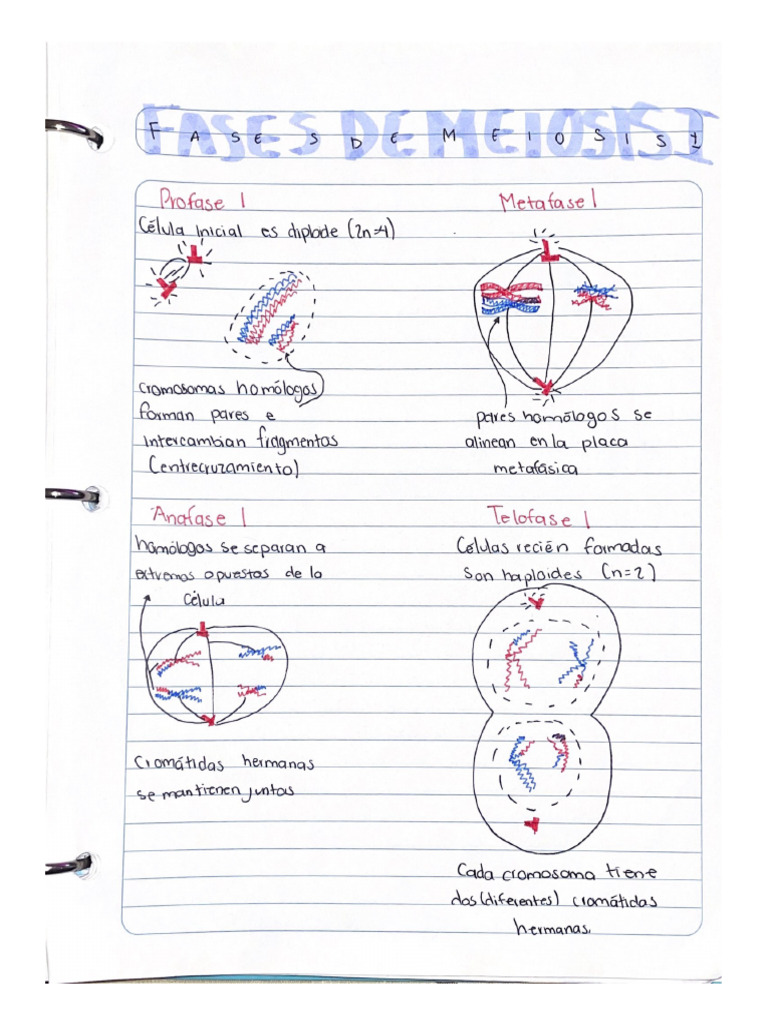 FASES DE MEIOSIS I
FASES DE MEIOSIS I
Profase 1
Célula inicial es diplode (2n=4)
cromosomas homólogos
forman pares e
intercambian fragmentos
(entrecruzamiento)
Metafase 1
pares homólogos se
alinean en la placa
metafásica
Anafase 1
homólogos se separan a
extremos opuestos de la
célula
Cromátidas hermanas
se mantienen juntas
Telofase 1
Células recién formadas
son haploides (n=2)
Cada cromosoma tiene
dos (diferentes) cromátidas
hermanas.